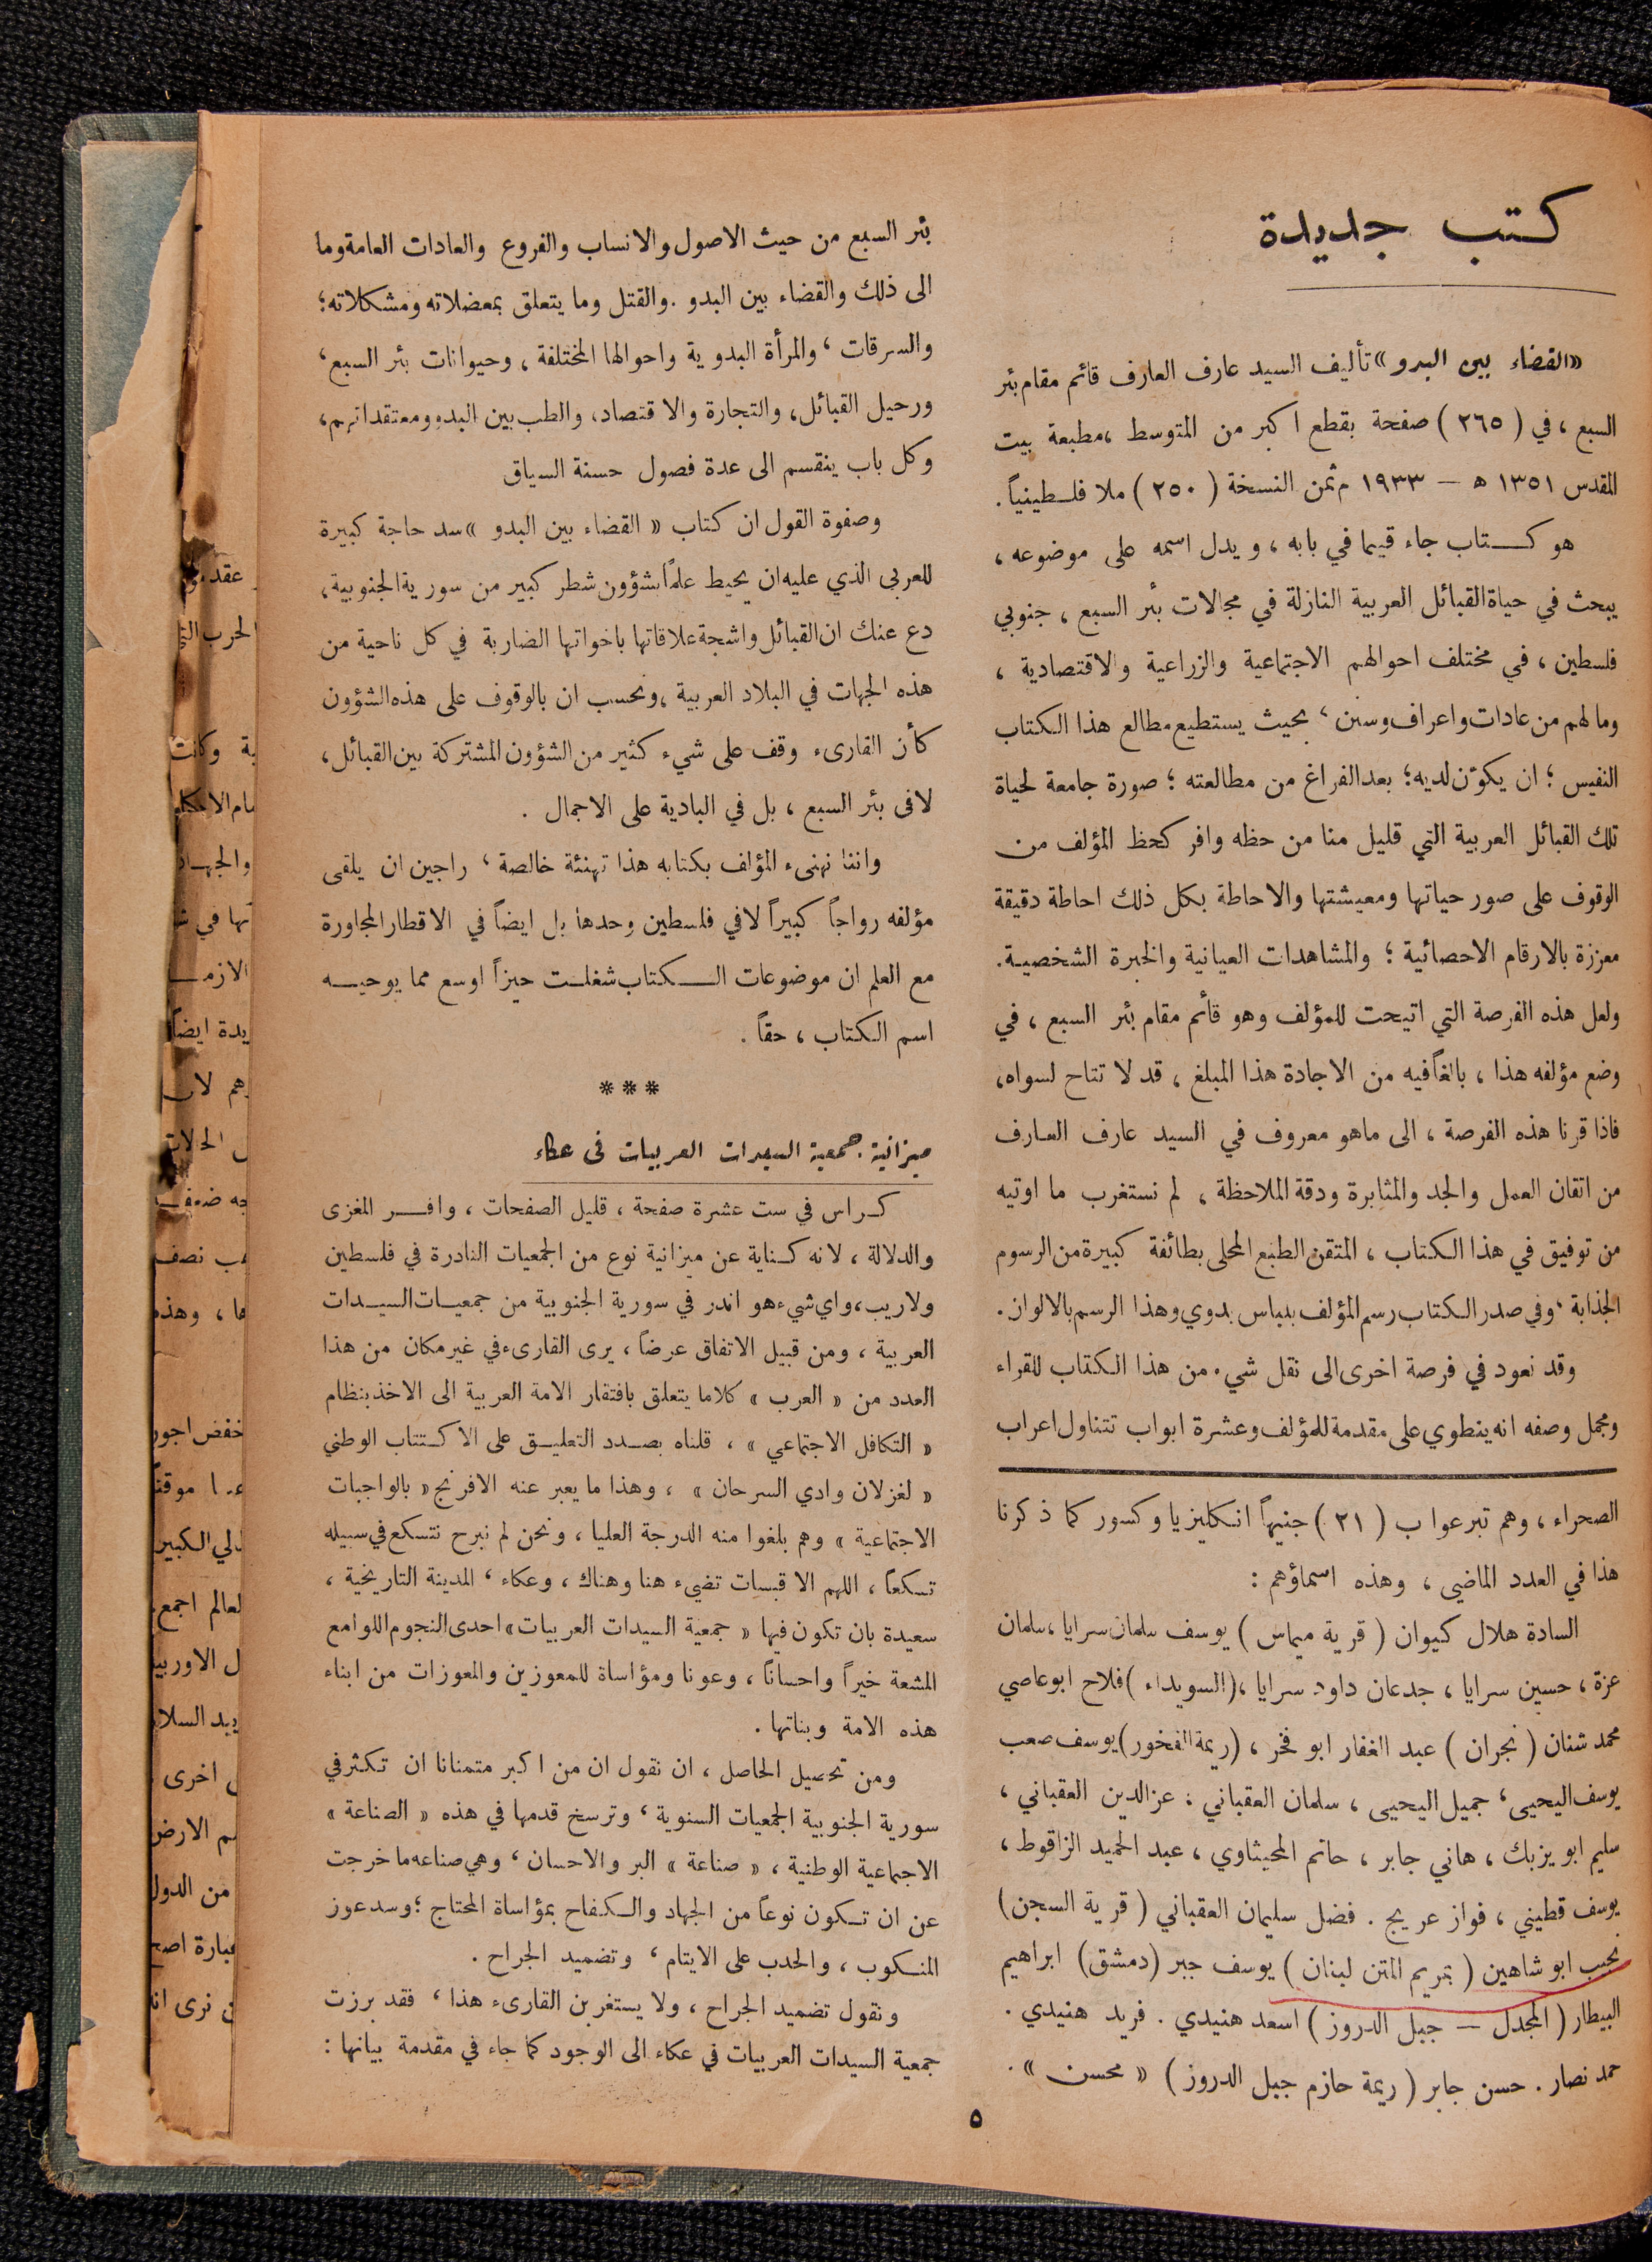 كتب جديدة
«القضاء بين البدو» تأليف السيد عارف العارف قائم مقام بئر
السبع ، في ( ٢٦٥ ) صفحة بقطع اكبر من المتوسط ، مطبعة بيت
المقدس ١٣٥١ ه — ١٩٣٣ م ثمن النسخة ( ٢٥٠ ) ملا فلسطينياً .
هو كتاب جاء قيما في بابه ، ويدل اسمه على موضوعه ،
يبحث في حياة القبائل العربية النازلة في مجالات بئر السبع ، جنوبي
فلسطين ، في مختلف احوالهم الاجتماعية والزراعية والاقتصادية ،
وما لهم من عادات واعراف وسنن ، بحيث يستطيع مطالع هذا الكتاب
النفيس ؛ ان يكوّن لديه ؛ بعد الفراغ من مطالعته ؛ صورة جامعة لحياة
تلك القبائل العربية التي قليل منا من حظه وافر كحظ المؤلف من
الوقوف على صور حياتها ومعيشتها والاحاطة بكل ذلك احاطة دقيقة
معززة بالارقام الاحصائية ؛ والمشاهدات العيانية والخبرة الشخصية .
ولعل هذه الفرصة التي اتيحت للمؤلف وهو قائم مقام بئر السبع ، في
وضع مؤلفه هذا ، بالغاً فيه من الاجادة هذا المبلغ ، قد لا تتاح لسواه ،
فاذا قرنا هذه الفرصة ، الى ماهو معروف في السيد عارف العارف
من اتقان العمل والجد والمثابرة ودقة الملاحظة ، لم نستغرب ما اوتيه
من توفيق في هذا الكتاب ، المتقن الطبع المحلى بطائفة كبيرة من الرسوم
الجذابة ، وفي صدر الكتاب رسم المؤلف بلباس بدوي وهذا الرسم بالالوان .
وقد نعود في فرصة اخرى الى نقل شيء من هذا الكتاب للقراء
ومجمل وصفه انه ينطوي على مقدمة للمؤلف وعشرة ابواب تتناول اعراب
الصحراء ، وهم تبرعوا ب ( ٢١ ) جنيهاً انكليزيا وكسور كما ذكرنا
هذا في العدد الماضي ، وهذه اسماؤهم :
السادة هلال كيوان ( قرية ميماس ) يوسف سلمان سرايا ، سلمان
عزة ، حسين سرايا ، جدعان داود سرايا ، ( السويداء ) فلاح ابو عاصي
محمد شنان ( نجران ) عبد الغفار ابو فخر ، ( ريمة الفخور ) يوسف صعب
يوسف اليحيى ، جميل اليحيى ، سلمان العقباني ، عز الدين العقباني ،
سليم ابو يزبك ، هاني جابر ، حاتم المحيثاوي ، عبد الحميد الزاقوط ،
يوسف قطيني ، فواز عريج . فضل سليمان العقباني ( قرية السجن )
نجيب ابو شاهين ( بتريم المتن لبنان ) يوسف جبر ( دمشق ) ابراهيم
البيطار ( المجدل — جبل الدروز ) اسعد هنيدي . فريد هنيدي .
حمد نصار . حسن جابر ( ريمة حازم جبل الدروز ) « محسن » .
بئر السبع من حيث الاصول والانساب والفروع والعادات العامة وما
الى ذلك والقضاء بين البدو . والقتل وما يتعلق بمعضلاته ومشكلاته ؛
والسرقات ، والمرأة البدوية واحوالها المختلفة ، وحيوانات بئر السبع ،
ورحيل القبائل ، والتجارة والاقتصاد ، والطب بين البدو ومعتقداتهم ،
وكل باب ينقسم الى عدة فصول حسنة السياق
وصفوة القول ان كتاب « القضاء بين البدو » سد حاجة كبيرة
للعربي الذي عليه ان يحيط علماً بشؤون شطر كبير من سورية الجنوبية ،
دع عنك ان القبائل واشجة علاقاتها باخواتها الضاربة في كل ناحية من
هذه الجهات في البلاد العربية ، ونحسب ان بالوقوف على هذه الشؤون
كأن القارىء وقف على شيء كثير من الشؤون المشتركة بين القبائل ،
لا في بئر السبع ، بل في البادية على الاجمال .
واننا نهنىء المؤلف بكتابه هذا تهنئة خالصة ، راجين ان يلقى
مؤلفه رواجاً كبيراً لا في فلسطين وحدها بل ايضاً في الاقطار المجاورة
مع العلم ان موضوعات الكتاب شغلت حيزاً اوسع مما يوحيه
اسم الكتاب ، حقاً .
***
ميزانية جمعية السيدات العربيات في عكاء
كراس في ست عشرة صفحة ، قليل الصفحات ، وافر المغزى
والدلالة ، لانه كناية عن ميزانية نوع من الجمعيات النادرة في فلسطين
ولاريب ، واي شيء هو اندر في سورية الجنوبية من جمعيات السيدات
العربية ، ومن قبيل الاتفاق عرضاً ، يرى القارىء في غير مكان من هذا
العدد من « العرب » كلاما يتعلق بافتقار الامة العربية الى الاخذ بنظام
« التكافل الاجتماعي » ، قلناه بصدد التعليق على الاكتتاب الوطني
« لغزلان وادي السرحان » ، وهذا ما يعبر عنه الافرنج « بالواجبات
الاجتماعية » وهم بلغوا منه الدرجة العليا ، ونحن لم نبرح نتسكع في سبيله
تسكعاً ، اللهم الا قبسات تضيء هنا وهناك ، وعكاء ، المدينة التاريخية ،
سعيدة بان تكون فيها « جمعية السيدات العربيات » احدى النجوم اللوامع
المشعة خيراً واحساناً ، وعونا ومؤاساة للمعوزين والمعوزات من ابناء
هذه الامة وبناتها .
ومن تحصيل الحاصل ، ان نقول ان من اكبر متمنانا ان تكثر في
سورية الجنوبية الجمعيات السنوية ، وترسخ قدمها في هذه « الصناعة »
الاجتماعية الوطنية ، « صناعة » البر والاحسان ، وهي صناعه ما خرجت
عن ان تكون نوعاً من الجهاد والكفاح بمؤاساة المحتاج ؛ وسد عوز
المنكوب ، والحدب على الايتام ، وتضميد الجراح .
ونقول تضميد الجراح ، ولا يستغربن القارىء هذا ، فقد برزت
جمعية السيدات العربيات في عكاء الى الوجود كما جاء في مقدمة بيانها :
٥
الحرب
وكانت
والجهاد
في
يدة ايضاً
نصف
ها ، وهذه
خفض اجور
موقتاً
الكبير
لعالم اجمع
اخرى
من الدول
نرى